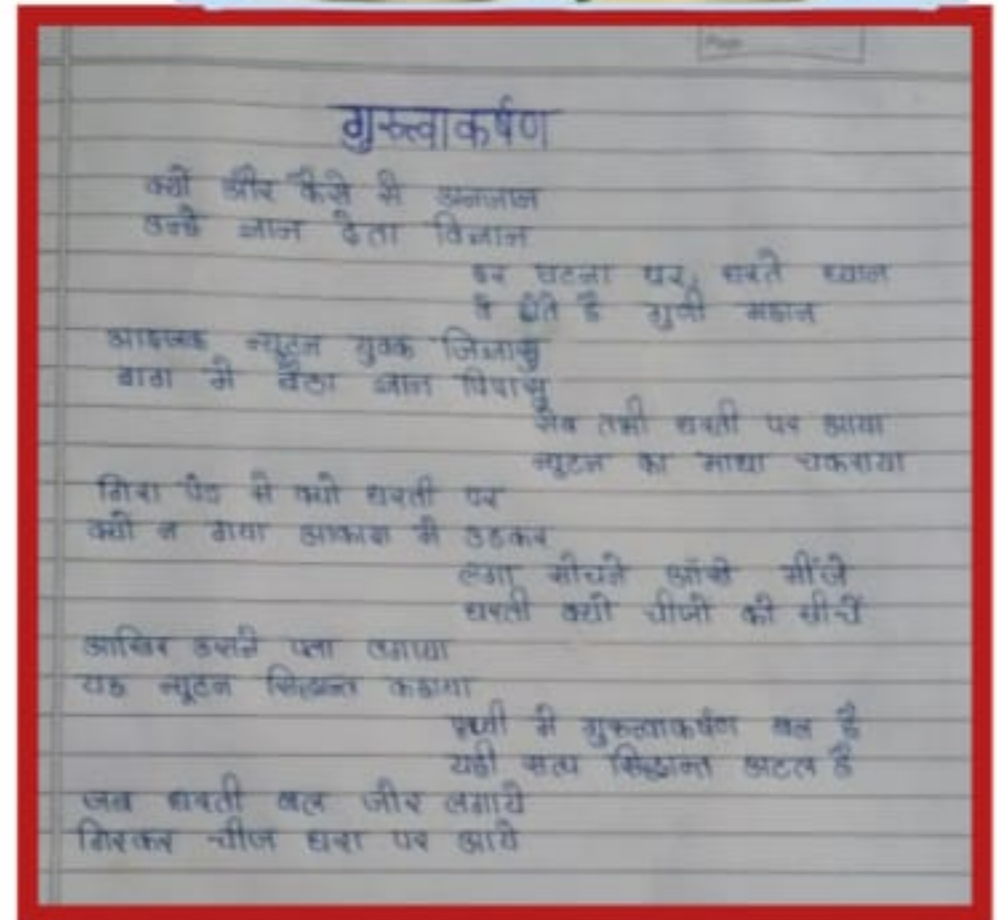 Page
गुरुत्वाकर्षण
क्यों और कैसे से अनजान
उन्हे ज्ञान देता विज्ञान
हर घटना पर, धरते ध्यान
वे होते है गुणी महान
आइजक न्यूटन युवक जिज्ञासु
बाग मे बैठा ज्ञान पिपासु
सेब तभी धरती पर आया
न्यूटन का माथा चकराया
गिरा पेड से क्यो धरती पर
क्यों न गया आकाश मे उडकर
लगा सोचने आँखे मींजे
धरती क्यों चीजो को खीचें
आखिर उसने पता लगाया
यह न्यूटन सिद्धान्त कहाया
पृथ्वी मे गुरुत्वाकर्षण बल है
यही सत्य सिद्धान्त अटल है
जब धरती बल जोर लगाये
गिरकर चीज धरा पर आये